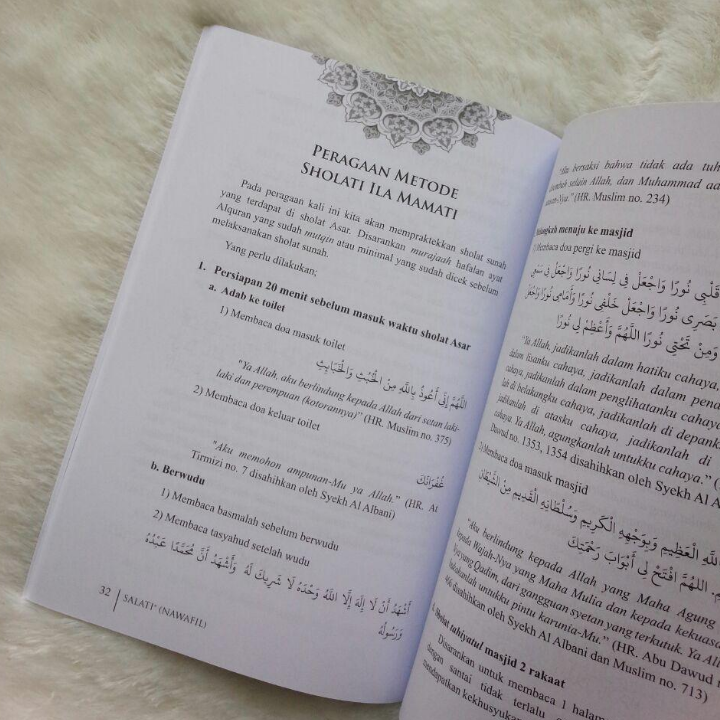 PERAGAAN METODE
SHOLATI ILA MAMATI
Pada peragaan kali ini kita akan mempraktekkan sholat sunah
yang terdapat di sholat Asar. Disarankan murajaah hafalan ayat
Alquran yang sudah muqin atau minimal yang sudah dicek sebelum
melaksanakan sholat sunah.
Yang perlu dilakukan;
1. Persiapan 20 menit sebelum masuk waktu sholat Asar
a. Adab ke toilet
1) Membaca doa masuk toilet
اللَّهُمَّ إِنِّي أَعُوذُ بِاللَّهِ مِنَ الْخُبْثِ وَالْخَبَايِثِ
"Ya Allah, aku berlindung kepada Allah dari setan laki-
laki dan perempuan (kotorannya)" (HR. Muslim no. 375)
2) Membaca doa keluar toilet
غُفْرَانَكَ
"Aku memohon ampunan-Mu ya Allah." (HR. At
Tirmizi no. 7 disahihkan oleh Syekh Al Albani)
b. Berwudu
1) Membaca basmalah sebelum berwudu
2) Membaca tasyahud setelah wudu
أَشْهَدُ أَنْ لَا إِلَهَ إِلَّا اللَّهُ وَحْدَهُ لَا شَرِيكَ لَهُ وَأَشْهَدُ أَنَّ مُحَمَّدًا عَبْدُهُ
وَرَسُولُهُ
32 | SALATI" (NAWAFIL)
"Aku bersaksi bahwa tidak ada tuh
selain Allah, dan Muhammad ad
(HR. Muslim no. 234)
menuju ke masjid
Membaca doa pergi ke masjid
قَلْبِي نُورًا وَاجْعَلْ فِي لِسَانِي نُورًا وَاجْعَلْ فِي سَمْعِي
بَصَرِي نُورًا وَاجْعَلْ خَلْفِي نُورًا وَأَمَامِي نُورًا وَاجْعَلْ
وَمِنْ تَحْتِي نُورًا اللَّهُمَّ وَأَعْظِمْ لِي نُورًا
"Ya Allah, jadikanlah dalam hatiku cahaya,
dalam lisanku cahaya, jadikanlah dalam pend
cahaya, jadikanlah dalam penglihatanku cahaya
lah di belakangku cahaya, jadikanlah di depank
jadikanlah di atasku cahaya, jadikanlah di
cahaya. Ya Allah, agungkanlah untukku cahaya." (
Dawud no. 1353, 1354 disahihkan oleh Syekh Al
Membaca doa masuk masjid
اللَّهِ الْعَظِيمِ وَبِوَجْهِهِ الْكَرِيمِ وَسُلْطَانِهِ الْقَدِيمِ مِنَ الشَّيْطَانِ
اللهم افْتَحْ لِي أَبْوَابَ رَحْمَتِكَ
"Aku berlindung kepada Allah yang Maha Agung
kepada Wajah-Nya yang Maha Mulia dan kepada kekuasa
Nya yang Qadim, dari gangguan syetan yang terkutuk. Ya
untukku pintu karunia-Mu." (HR. Abu Dawud
466 disahihkan oleh Syekh Al Albani dan Muslim no. 713)
tahiyatul masjid 2 rakaat
Disarankan untuk membaca 1 halam
dengan santai tidak terlalu
mendapatkan kekhusyukan